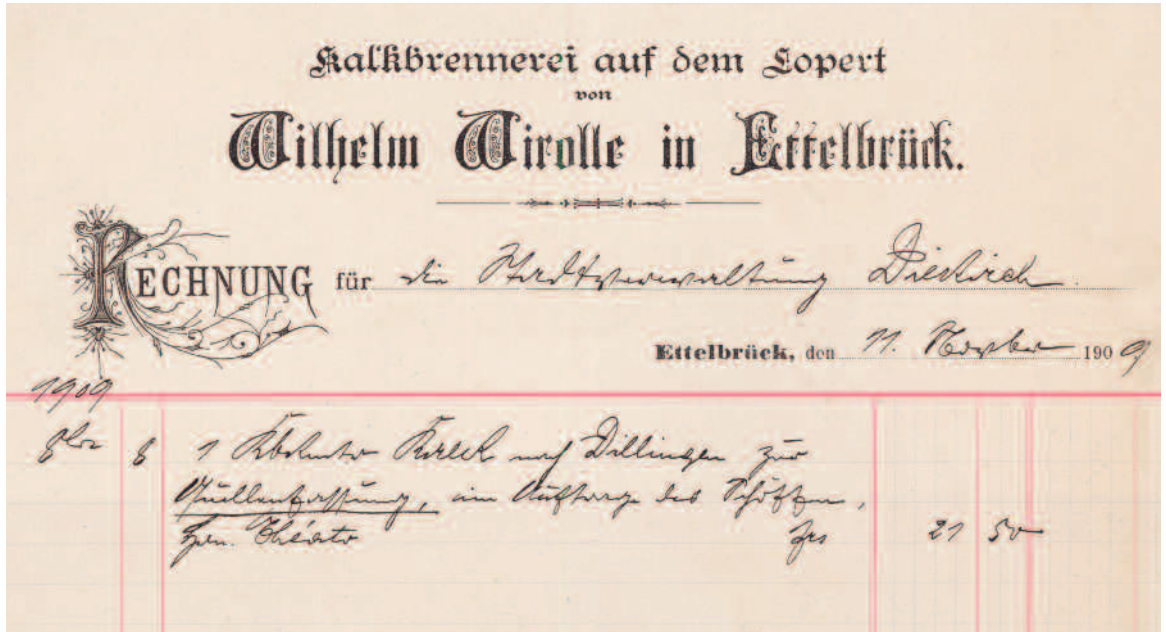 Kalkbrennerei auf dem Lopert
von
Wilhelm Wirolle in Ettelbrück.
RECHNUNG für die Stadtverwaltung Diekirch
Ettelbrück, den 11. Novber 1909
1909
8bre 8 1 Kbkmtr Kalk nach Dillingen zur
Quellenfassung, im Auftrage des Schöffen,
Hrn. Théato frs 21 50